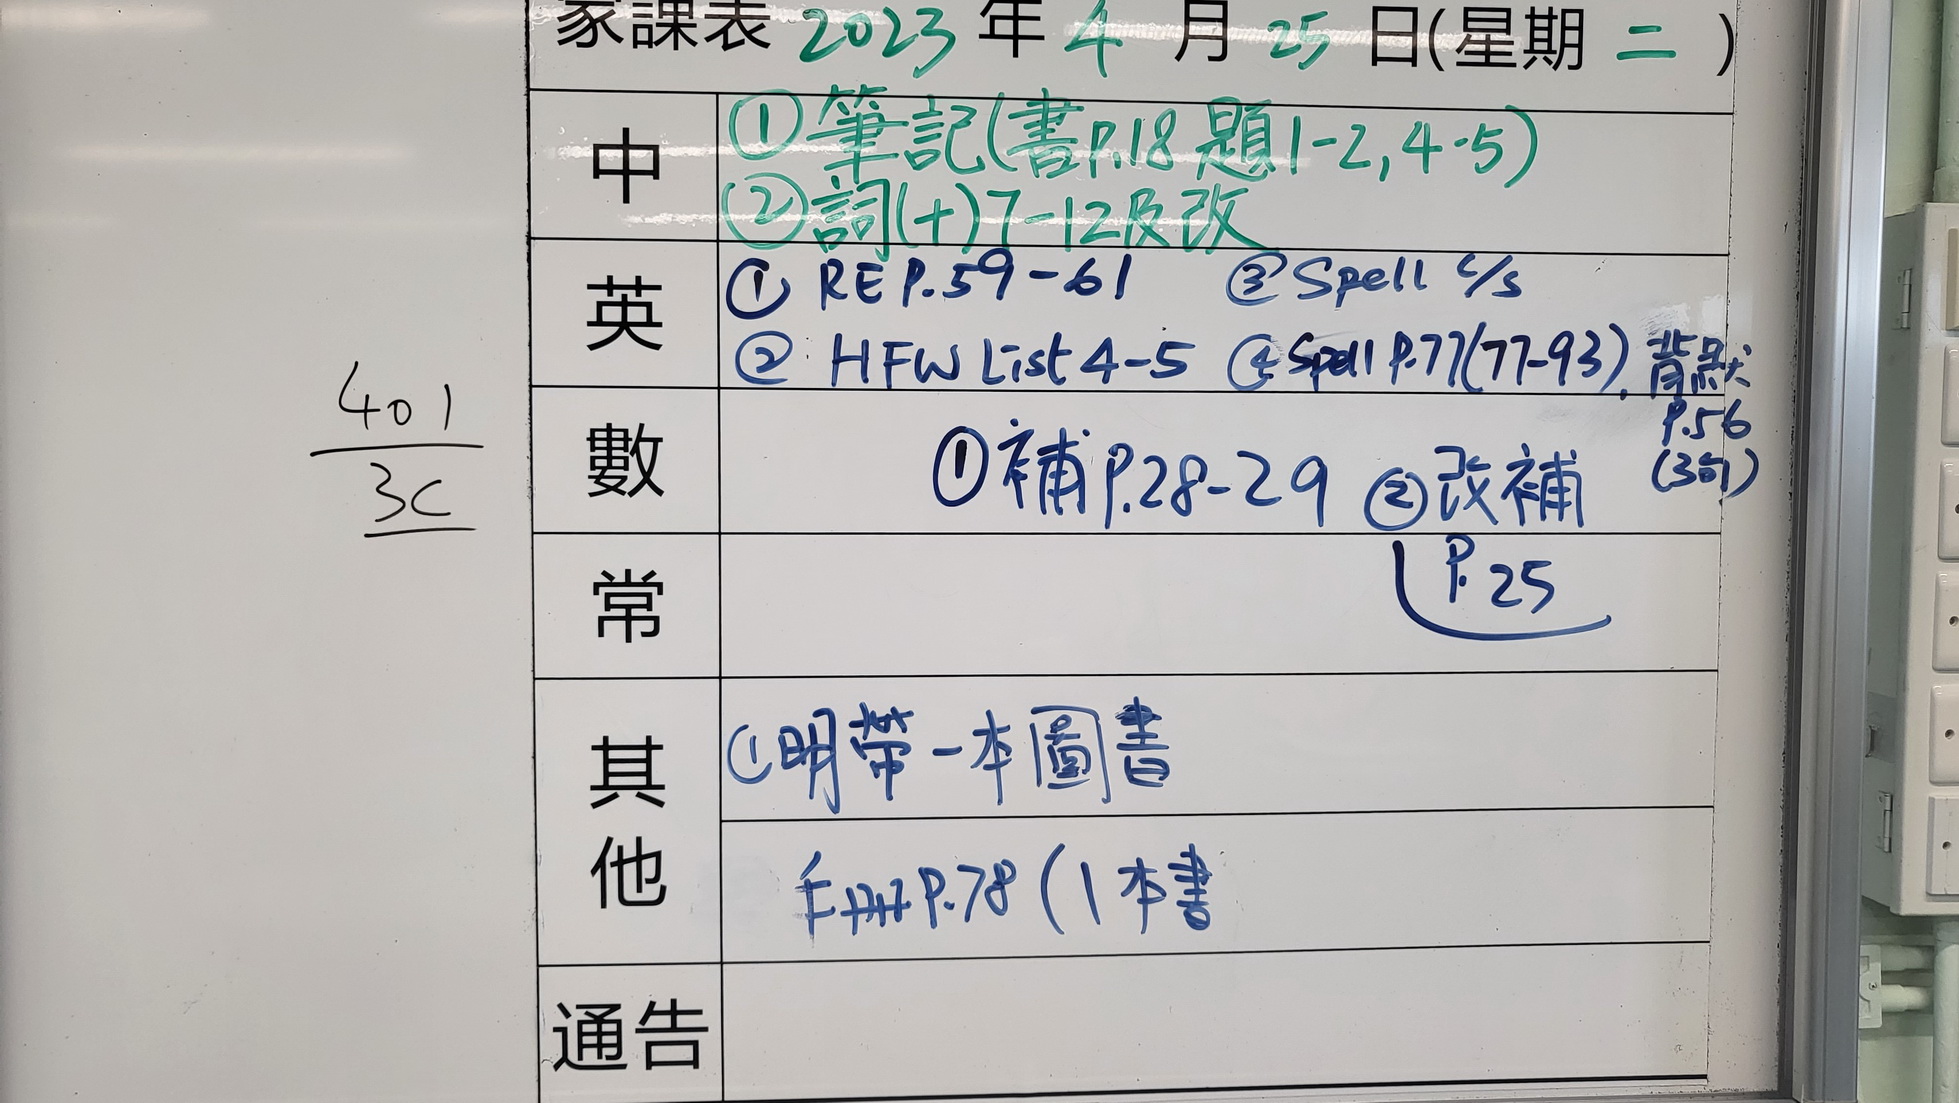 家課表 2023 年 4 月 25 日(星期 二 )
中
①筆記(書P.18題1-2,4-5)
②詞(十)7-12及改
英
① RE P.59-61 ③Spell c/s
② HFW List 4-5 ④Spell P.77(77-93), 背默
P.56
(3句)
數
①補P.28-29 ②改補
P.25
常
其他
①明帶一本圖書
手冊P.78(1本書
通告
401
3C